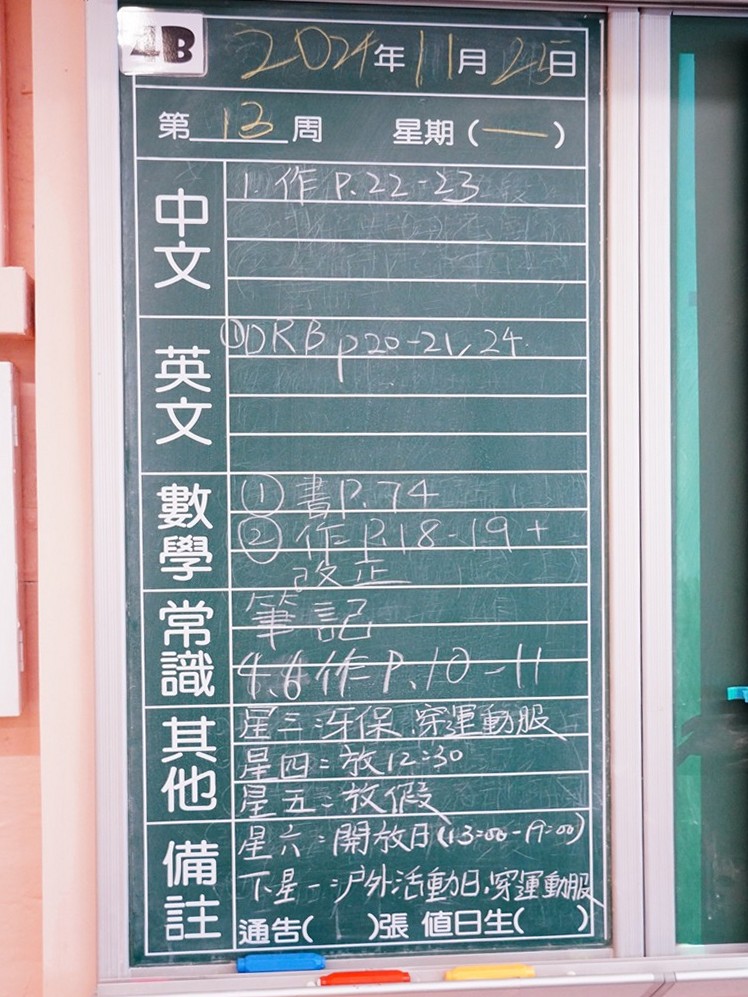 4B
2024年11月25日
第13周 星期(一)
中文
1. 作 P.22-23
英文
①DRB p20-21, 24.
數學
① 書P.74
② 作 P.18-19 +
改正
常識
筆記
4.6 作P.10-11
其他
星三:牙保.穿運動服
星四:放12:30
星五:放假
備註
星六:開放日(13:00-19:00)
下星一:戶外活動日.穿運動服
通告( )張 值日生( )